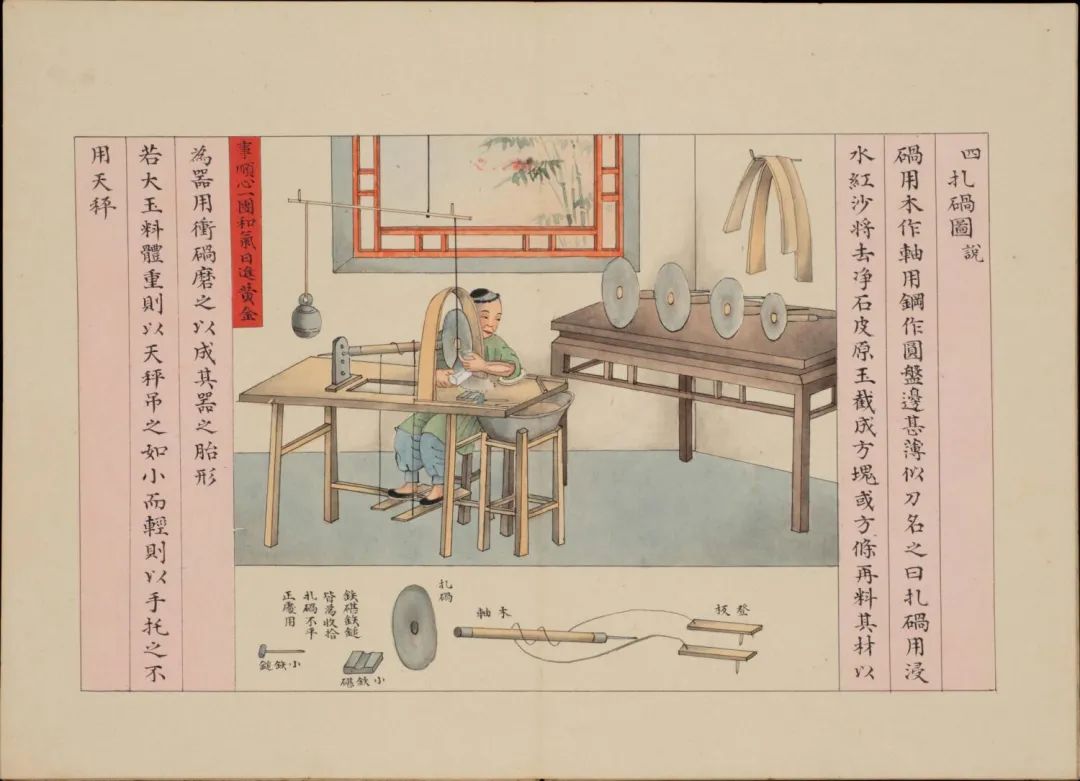 四扎碢圖說
碢用木作軸用鋼作圓盤邊甚薄似刀名之曰扎碢用浸
水紅沙將去净石皮原玉截成方塊或方條再料其材以
事順心一團和氣日進黃金
為器用衝碢磨之以成其器之胎形
若大玉料體重則以天秤吊之如小而輕則以手托之不
用天秤
登板
木軸
扎碢
鉄碪鉄鎚
皆為收拾
扎碢不平
正處用
小鉄碪
小鉄鎚